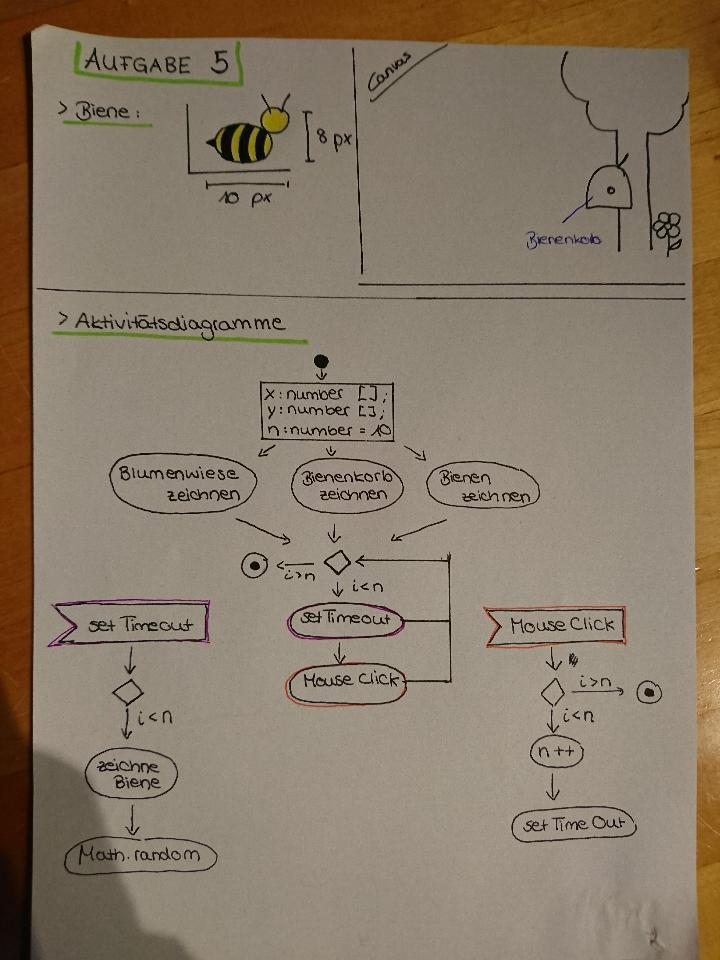 AUFGABE 5
> Biene:
8 px
10 px
Canvas
Bienenkorb
> Aktivitätsdiagramme
x:number [];
y:number [];
n:number = 10
Blumenwiese
zeichnen
Bienenkorb
zeichnen
Bienen
zeichnen
i>n
i<n
set Timeout
set Timeout
Mouse Click
Mouse Click
i<n
i>n
i<n
zeichne
Biene
n++
Math.random
set Time Out
2